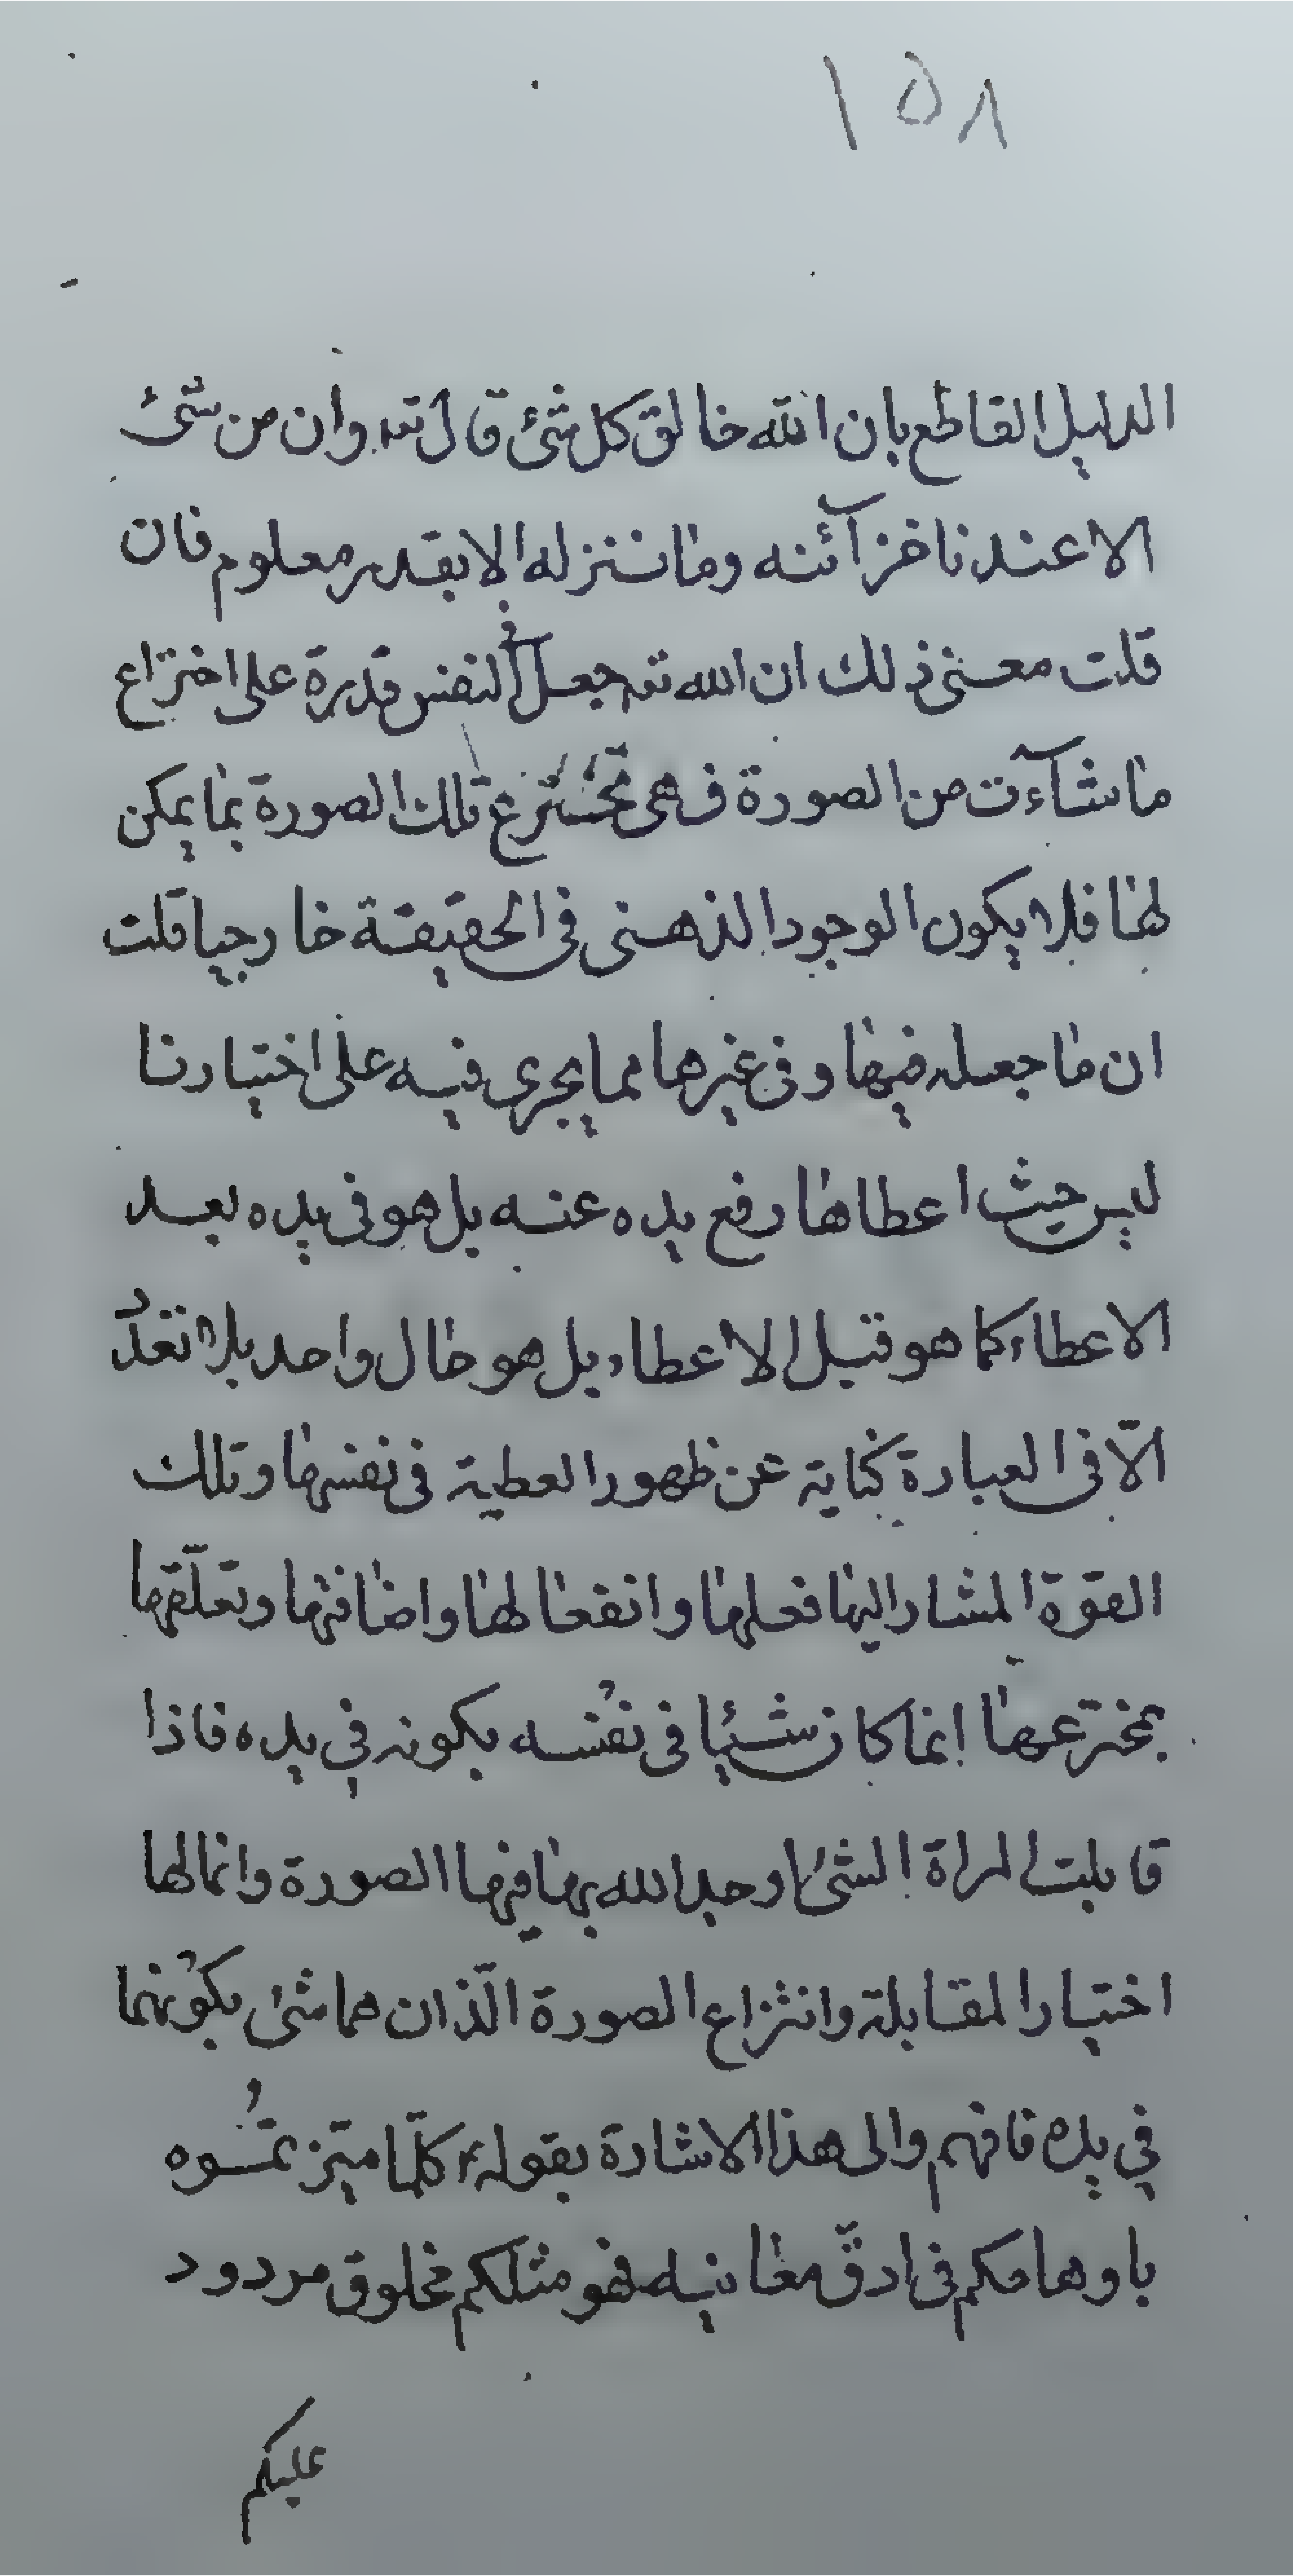 ١٥٨
الدليل القاطع بان الله خالق كل شئ قال تعه وان من شئ
الا عندنا خزآئنه وما ننزله الا بقدر معلوم فان
قلت معنى ذلك ان الله تعه جعل في النفس قدرة على اختراع
ما شآءت من الصورة فهى تخترع تلك الصورة بما يمكن
لها فلا يكون الوجود الذهنى فى الحقيقة خارجيا قلت
ان ما جعله فيها وفى غيرها مما يجرى فيه على اختيارنا
ليس حيث اعطاها رفع يده عنه بل هو فى يده بعد
الاعطاء كما هو قبل الاعطاء بل هو حال واحد بلا تعدد
الّا فى العبارة كناية عن ظهور العطية فى نفسها وتلك
القوة المشار اليها فعلها وانفعالها واضافتها وتعلّقها
بمخترعها انما كان شيئا فى نفسه بكونه في يده فاذا
قابلت المراة الشئ اوجد الله بها فيها الصورة وانما لها
اختيار المقابلة وانتزاع الصورة الّذان هما شئ بكونهما
في يده فافهم والى هذا الاشارة بقوله ء كلّما ميّزتموه
باوهامكم فى ادقّ معانيه فهو مثلكم مخلوق مردود
عليكم